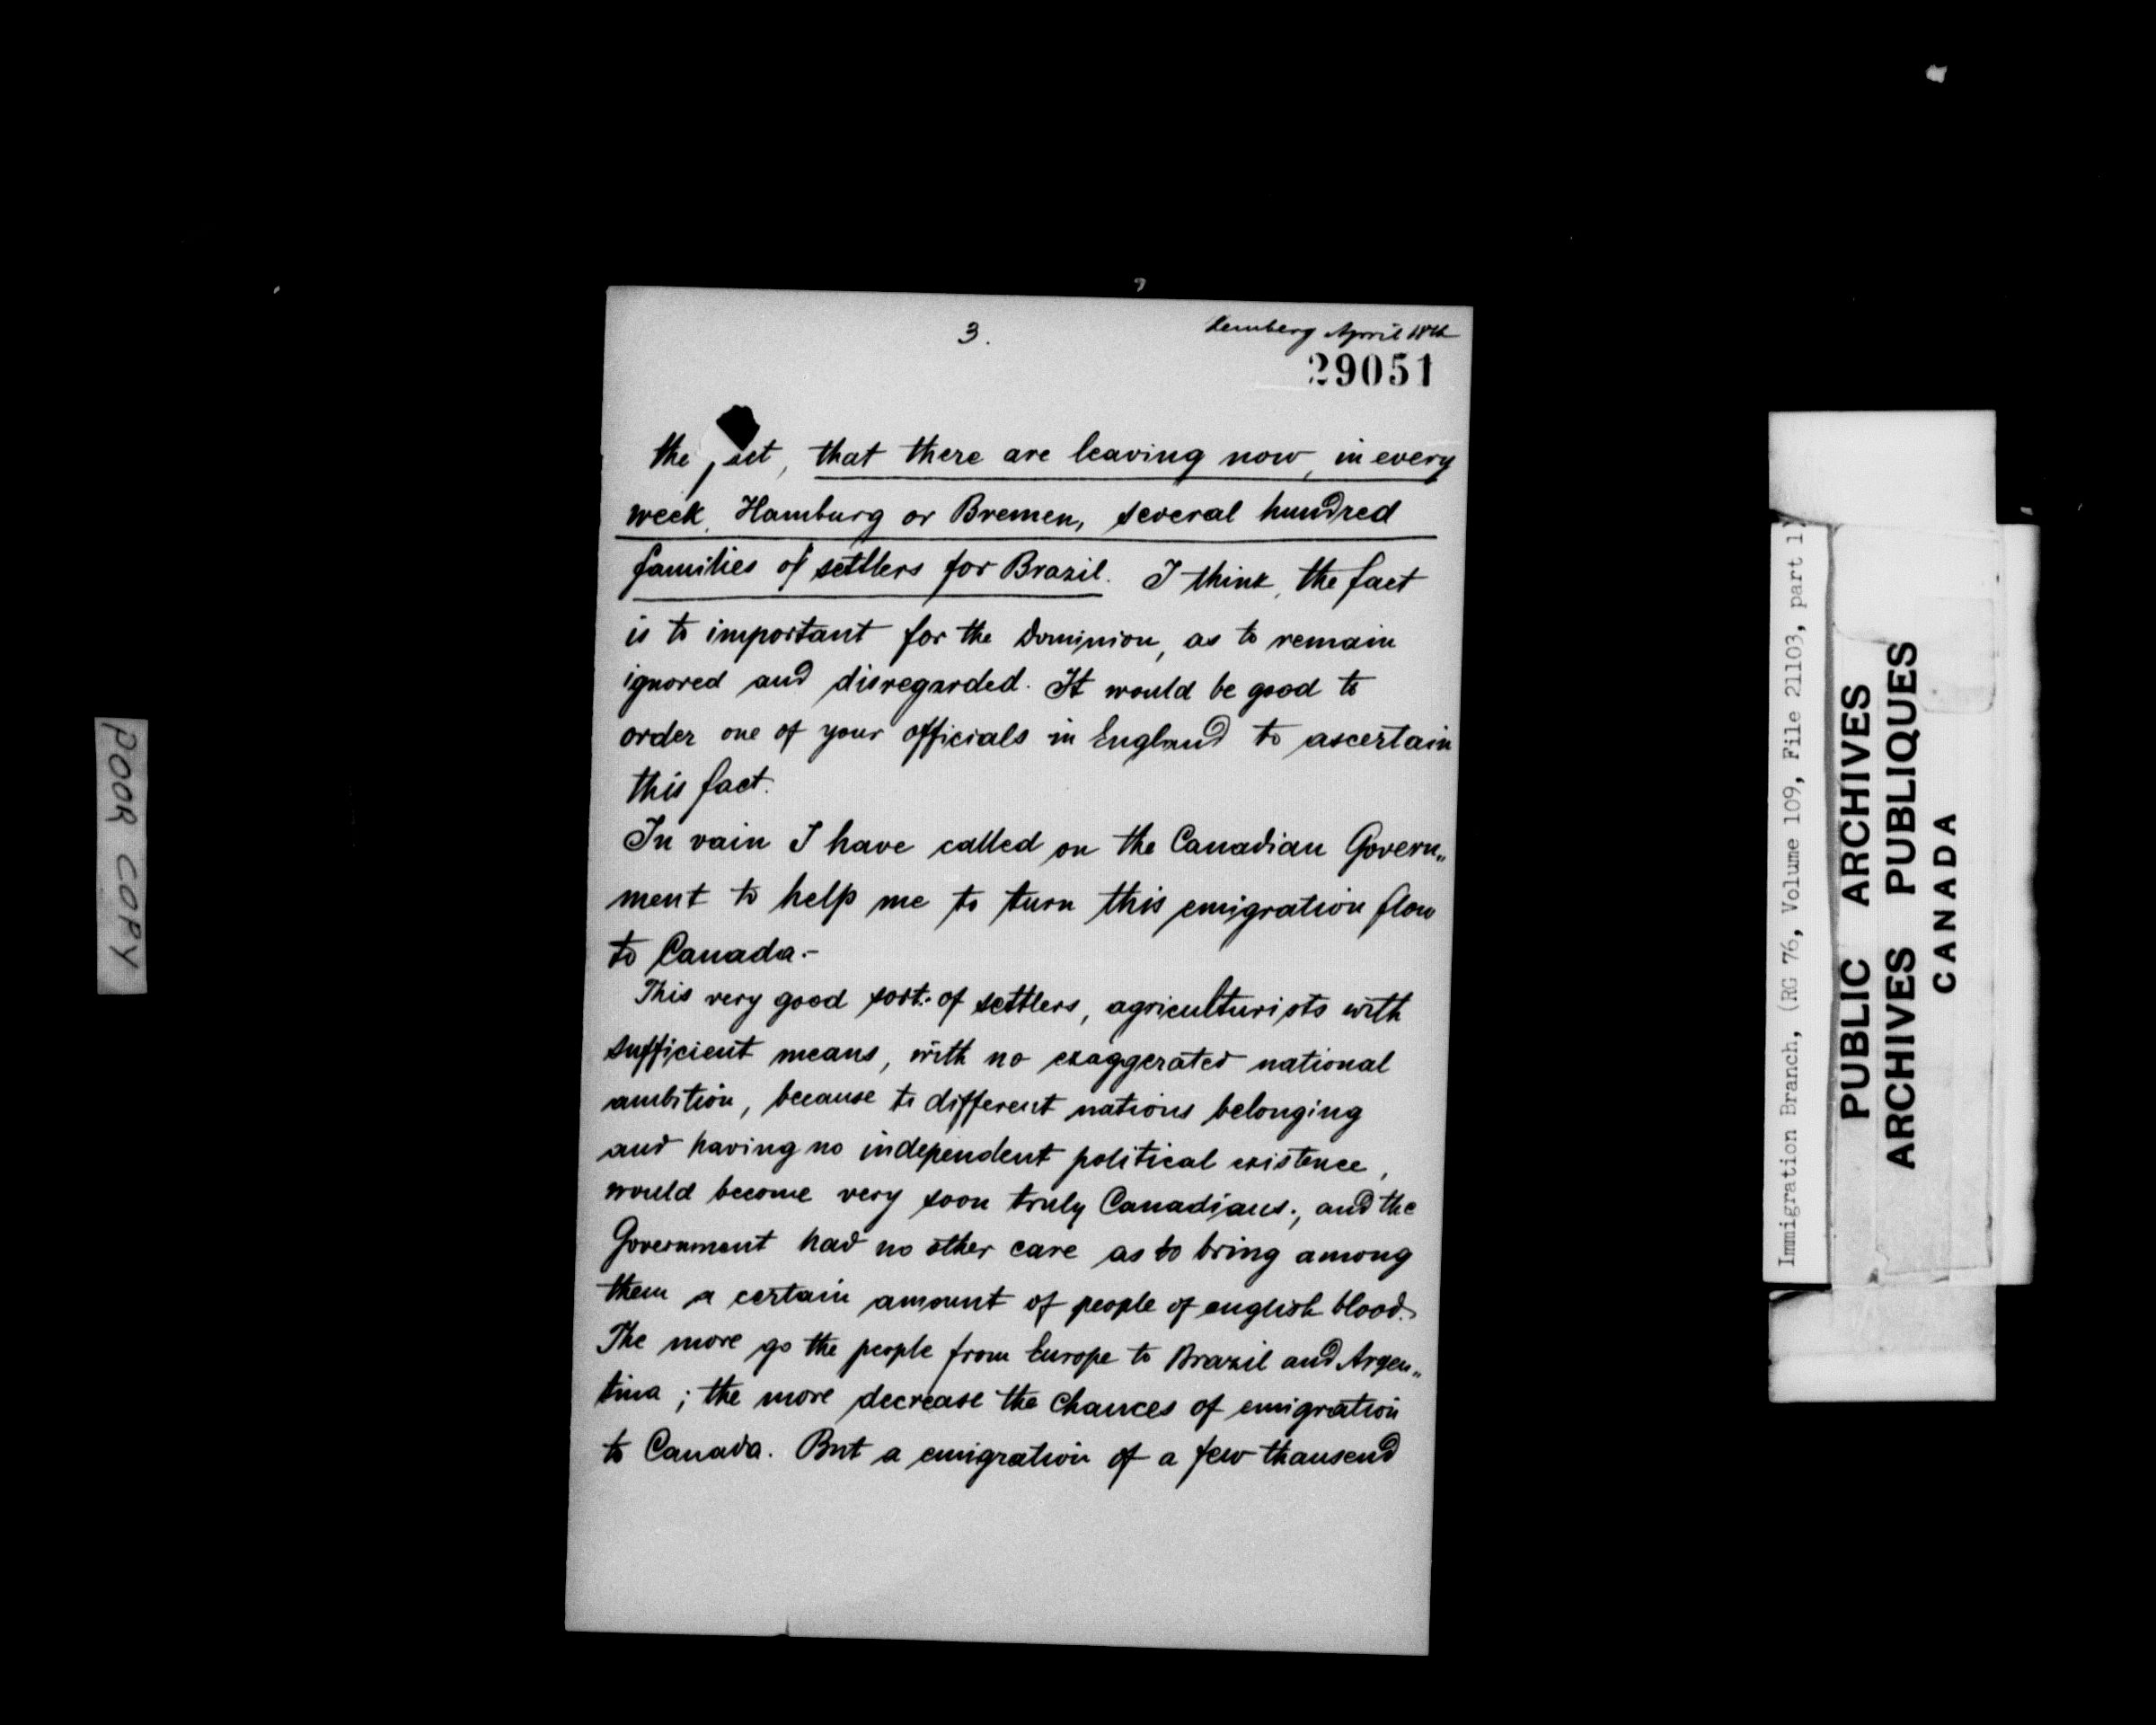 3.
Lemberg April 18th
29051
the fact, that there are leaving now, in every
week, Hamburg or Bremen, several hundred
families of settlers for Brazil. I think, the fact
is to important for the Dominion, as to remain
ignored and disregarded. It would be good to
order one of your officials in England to ascertain
this fact.
In vain I have called on the Canadian Govern„
ment to help me to turn this emigration flow
to Canada.-
This very good sort. of settlers, agriculturists with
sufficient means, with no exaggerated national
ambition, because to different nations belonging
and having no independent political existence,
would become very soon truly Canadians., and the
Government had no other care as to bring among
them a certain amount of people of english blood.
The more go the people from Europe to Brazil and Argen„
tina ; the more decrease the chances of emigration
to Canada. But a emigration of a few thausend
POOR COPY
Immigration Branch, (RG 76, Volume 109, File 21103, part 1)
PUBLIC ARCHIVES
ARCHIVES PUBLIQUES
CANADA